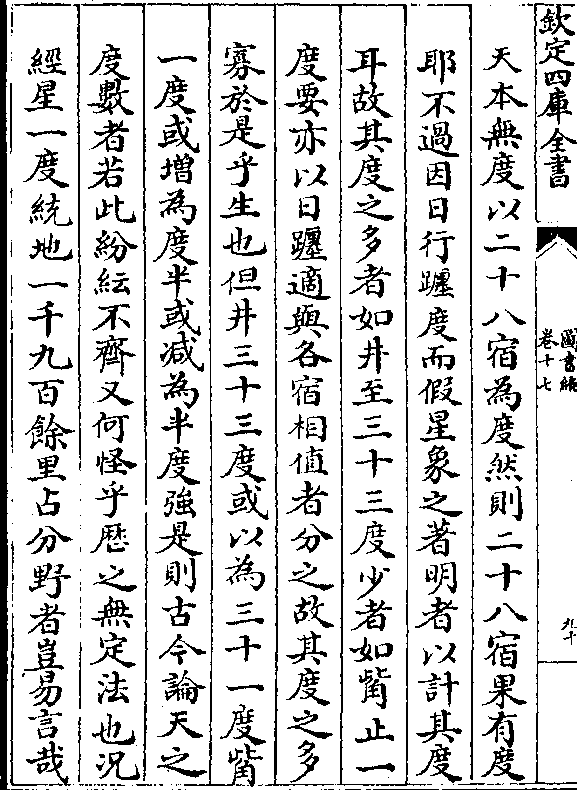 欽定四庫全書
圖書編
卷十七
九十
天本無度以二十八宿為度然則二十八宿果有度
耶不過因日行躔度而假星象之著明者以計其度
耳故其度之多者如井至三十三度少者如觜止一
度要亦以日躔適與各宿相值者分之故其度之多
寡於是乎生也但井三十三度或以為三十一度觜
一度或增為度半或減為半度強是則古今論天之
度數者若此紛紜不齊又何怪乎歴之無定法也況
經星一度統地一千九百餘里占分野者豈易言哉